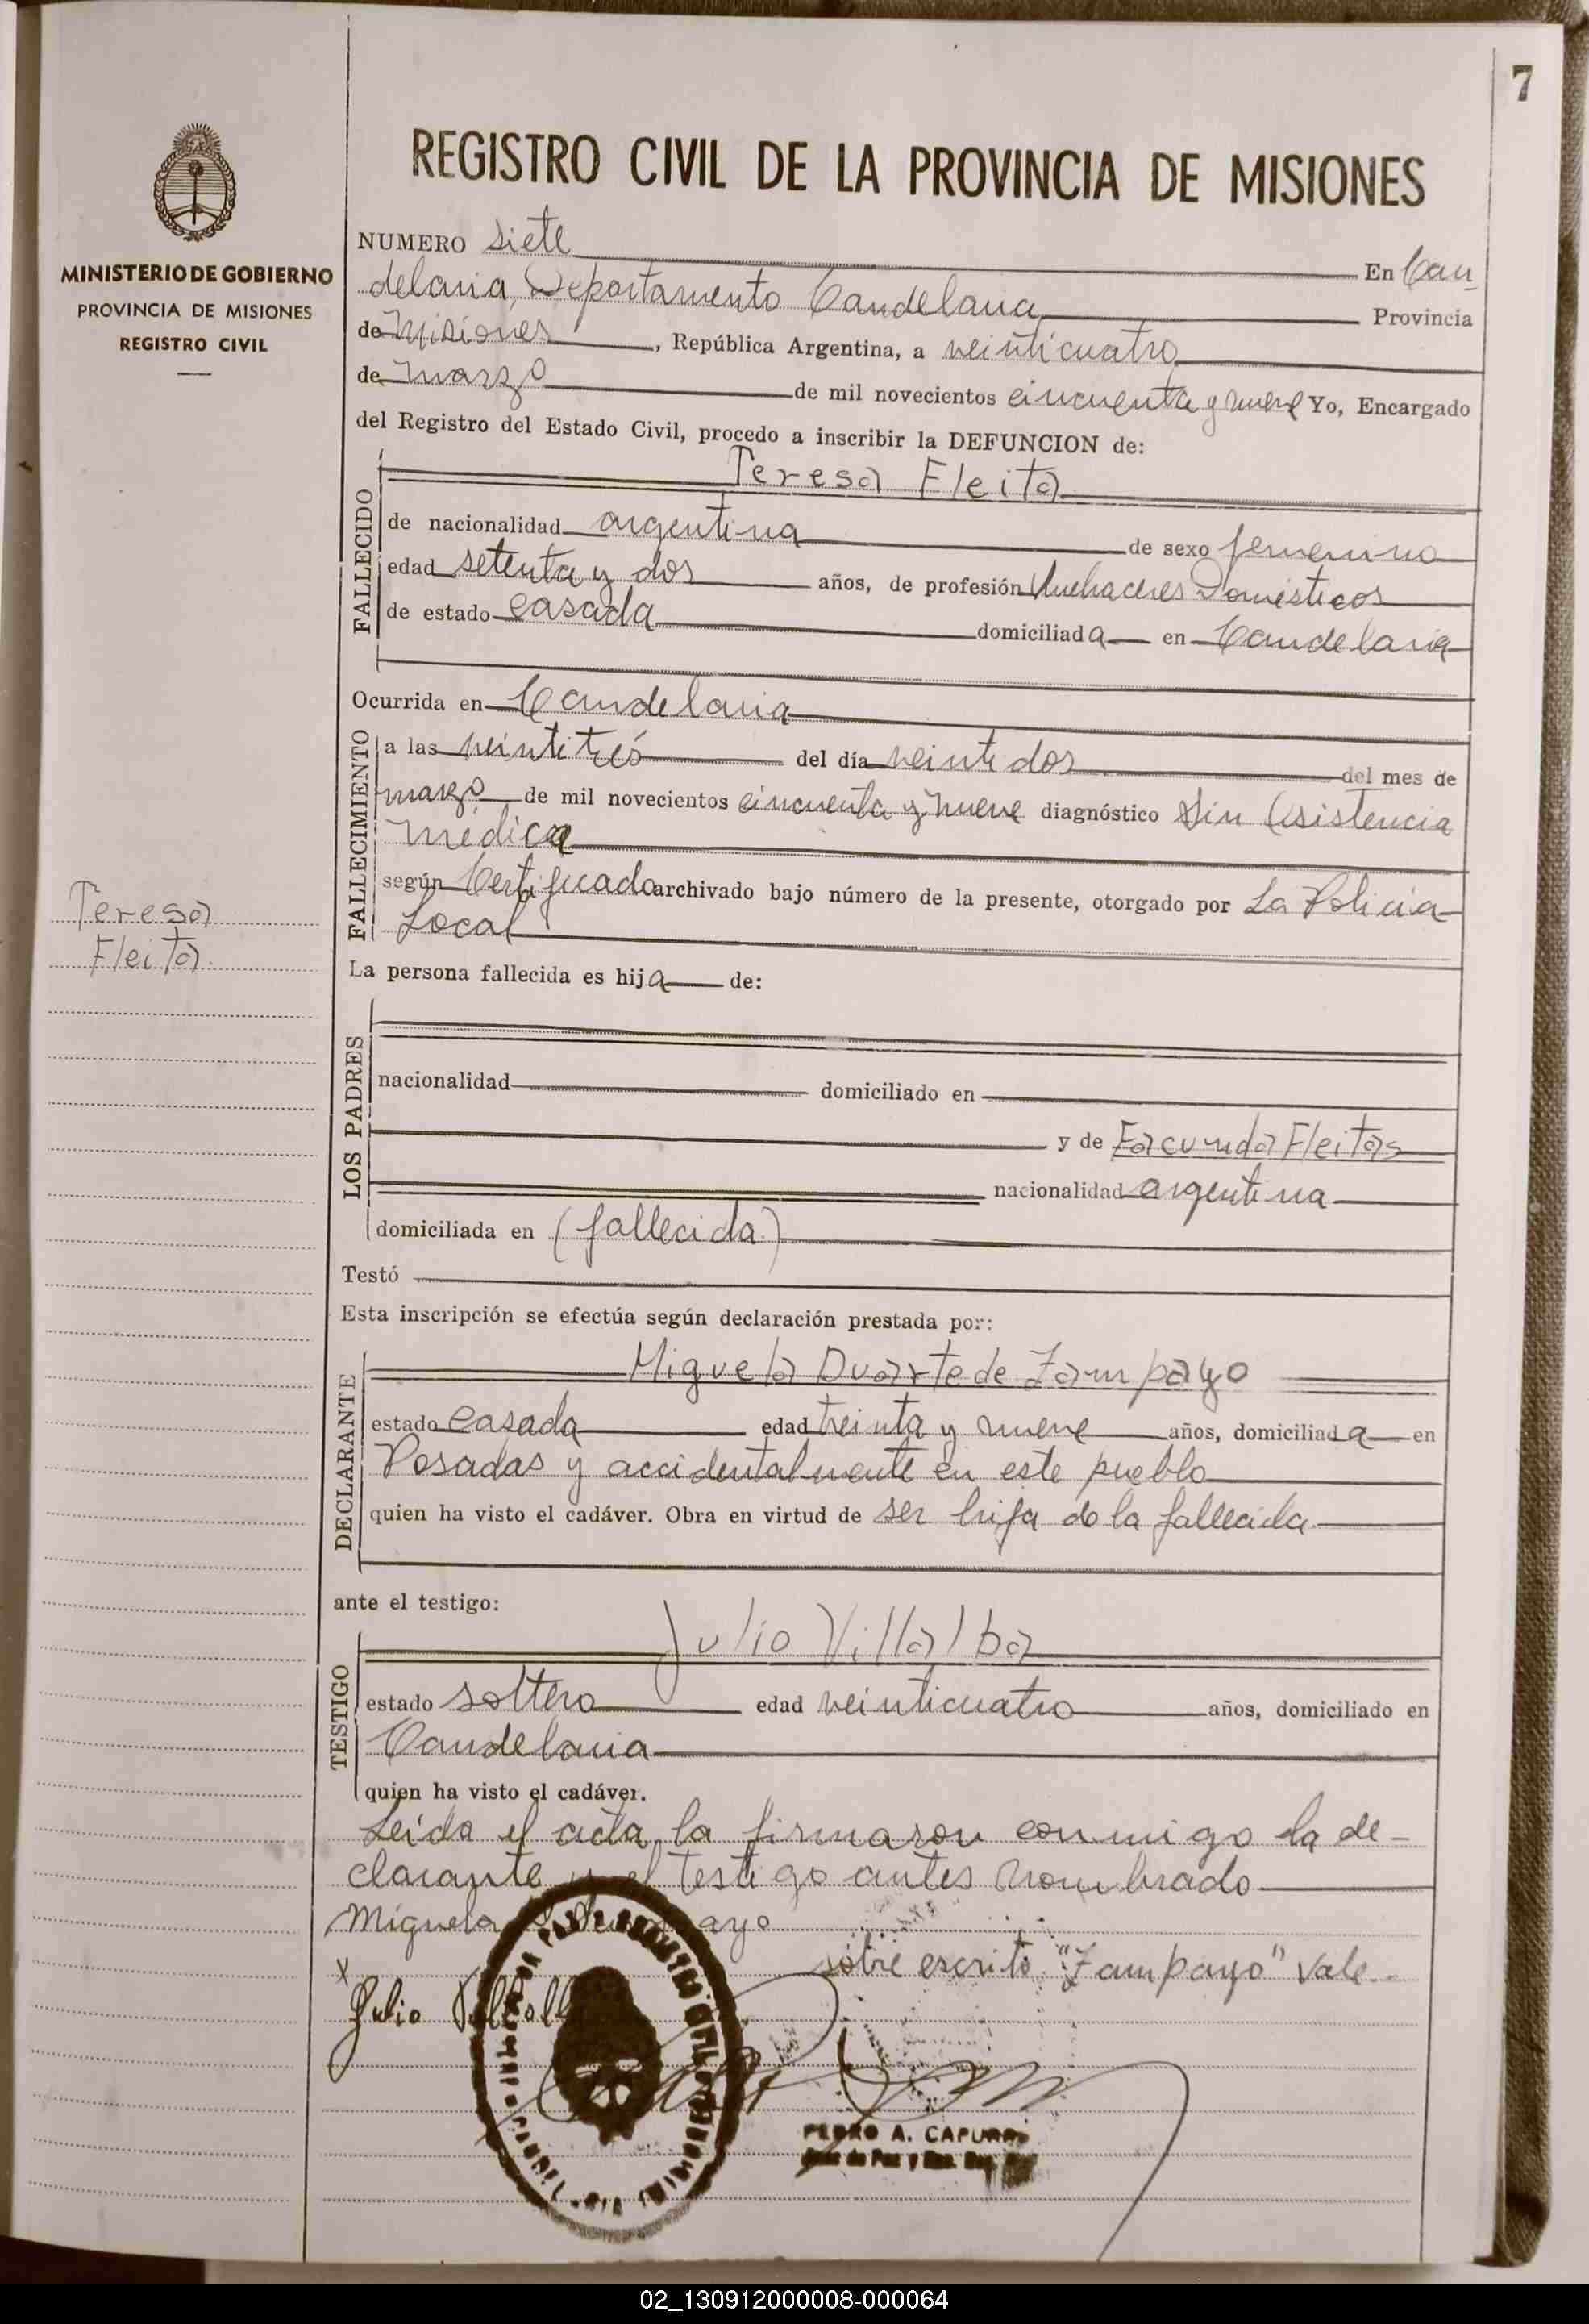 7
REGISTRO CIVIL DE LA PROVINCIA DE MISIONES
MINISTERIO DE GOBIERNO
PROVINCIA DE MISIONES
REGISTRO CIVIL
NUMERO siete En Can
delaria, Departamento Candelaria Provincia
de Misiones, República Argentina, a veinticuatro
de marzo de mil novecientos cincuenta y nueve Yo, Encargado
del Registro del Estado Civil, procedo a inscribir la DEFUNCION de:
Teresa Fleita
FALLECIDO
de nacionalidad argentina de sexo femenino
edad setenta y dos años, de profesión Quehaceres Domésticos
de estado casada domiciliada en Candelaria
Ocurrida en Candelaria
FALLECIMIENTO
a las veintitrés del día veinte dos del mes de
marzo de mil novecientos cincuenta y nueve diagnóstico Sin Asistencia
Médica
según Certificado archivado bajo número de la presente, otorgado por La Policía
Local
Teresa
Fleita.
La persona fallecida es hija de:
LOS PADRES
nacionalidad domiciliado en
y de Facunda Fleitas
nacionalidad argentina
domiciliada en (fallecida)
Testó
Esta inscripción se efectúa según declaración prestada por:
Miguela Duarte de Zampayo
DECLARANTE
estado casada edad treinta y nueve años, domiciliada en
Posadas y accidentalmente en este pueblo
quien ha visto el cadáver. Obra en virtud de ser hija de la fallecida
ante el testigo:
Julio Villalba
TESTIGO
estado soltero edad veinticuatro años, domiciliado en
Candelaria
quien ha visto el cadáver.
Leída el acta, la firmaron conmigo la de-
clarante y el testigo antes nombrado
Miguela
sobre escrito "Zampayo" Vale
Julio
PEDRO A. CAPURRO
02_130912000008-000064